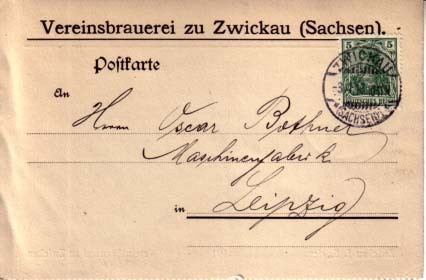 Vereinsbrauerei zu Zwickau (Sachsen).
Postkarte
5 5
ZWICKAU
(SACHSEN)
An
Herrn Oscar Bothner
Maschinenfabrik
in Leipzig